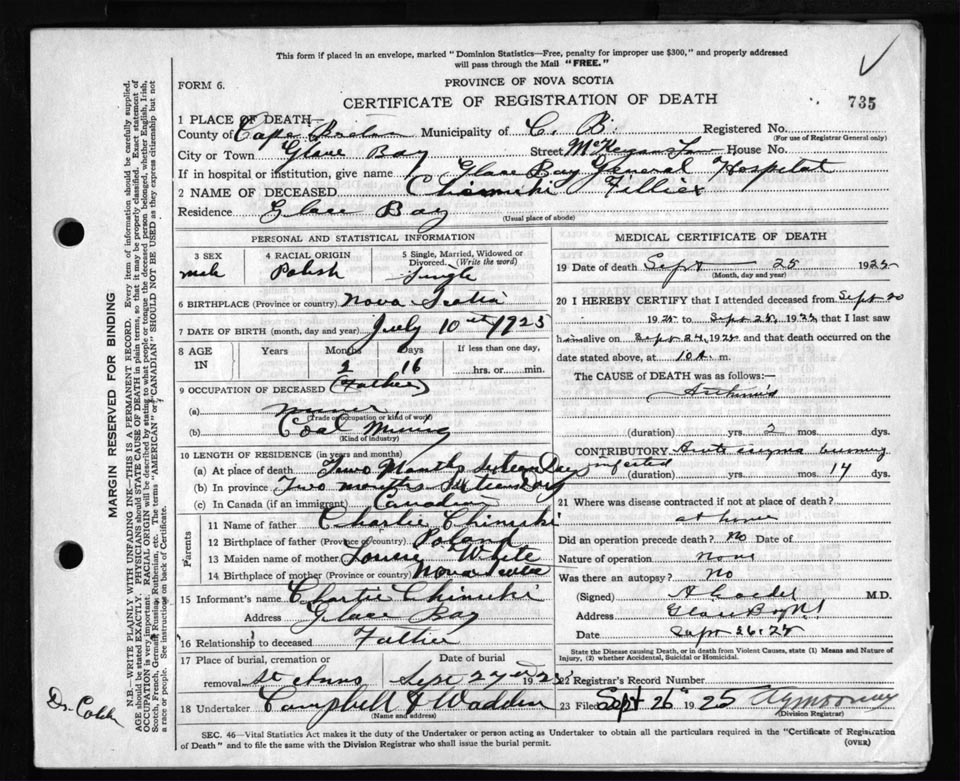 This form if placed in an envelope, marked "Dominion Statistics—Free, penalty for improper use $300," and properly addressed
will pass through the Mail "FREE."
FORM 6.
PROVINCE OF NOVA SCOTIA
CERTIFICATE OF REGISTRATION OF DEATH
735
1 PLACE OF DEATH—
County of Cape Breton Municipality of C. B. Registered No.
(For use of Registrar General only)
City or Town Glace Bay Street House No.
If in hospital or institution, give name Glace Bay General Hospital
2 NAME OF DECEASED Chismiski
Residence Glace Bay
(Usual place of abode)
PERSONAL AND STATISTICAL INFORMATION
3 SEX 4 RACIAL ORIGIN 5 Single, Married, Widowed or
Divorced. (Write the word)
male Polish Single
6 BIRTHPLACE (Province or country) Nova Scotia
7 DATE OF BIRTH (month, day and year) July 10th 1925
8 AGE IN Years Months Days If less than one day,
2 16 hrs. or min.
9 OCCUPATION OF DECEASED (Father)
(a) miner
(Trade or occupation or kind of work)
(b) Coal Mining
(Kind of industry)
10 LENGTH OF RESIDENCE (in years and months)
(a) At place of death Two Months sixteen Days
(b) In province Two months Sixteen Days
(c) In Canada (if an immigrant) Canadian
Parents
11 Name of father Charlie Chiniski
12 Birthplace of father (Province or country) Poland
13 Maiden name of mother Louise White
14 Birthplace of mother (Province or country) Nova Scotia
15 Informant's name Charlie Chiniski
Address Glace Bay
16 Relationship to deceased Father
17 Place of burial, cremation or Date of burial
removal St Anns Sept 27th 1925
18 Undertaker Campbell & Wadden
(Name and address)
MEDICAL CERTIFICATE OF DEATH
19 Date of death Sept 25 1925
(Month, day and year)
20 I HEREBY CERTIFY that I attended deceased from Sept 20
1925 to Sept 25, 1925 that I last saw
him alive on Sept 24, 1925 and that death occurred on the
date stated above, at 10 A. m.
The CAUSE of DEATH was as follows:—
(duration) yrs. 2 mos. dys.
CONTRIBUTORY
infected (duration) yrs. mos. 14 dys.
21 Where was disease contracted if not at place of death?
at home
Did an operation precede death? No Date of
Nature of operation None
Was there an autopsy? No
(Signed) M.D.
Address Glace Bay N.S.
Date Sept 26. 25
State the Disease causing Death, or in death from Violent Causes, state (1) Means and Nature of
Injury, (2) whether Accidental, Suicidal or Homicidal.
22 Registrar's Record Number
23 Filed Sept 26th 1925
(Division Registrar)
SEC. 46—Vital Statistics Act makes it the duty of the Undertaker or person acting as Undertaker to obtain all the particulars required in the "Certificate of Registration
of Death" and to file the same with the Division Registrar who shall issue the burial permit. (OVER)
MARGIN RESERVED FOR BINDING
N.B.—WRITE PLAINLY WITH UNFADING INK—THIS IS A PERMANENT RECORD. Every item of information should be carefully supplied.
AGE should be stated EXACTLY. PHYSICIANS should STATE CAUSE OF DEATH in plain terms, so that it may be properly classified. Exact statement of
OCCUPATION is very important. RACIAL ORIGIN will be described by stating to what people or tongue the deceased person belonged, whether English, Irish,
Scotch, French, German, Russian, Ruthenian, etc. The terms "AMERICAN" or "CANADIAN" SHOULD NOT BE USED as they express citizenship but not
a race or people. See instructions on back of Certificate.